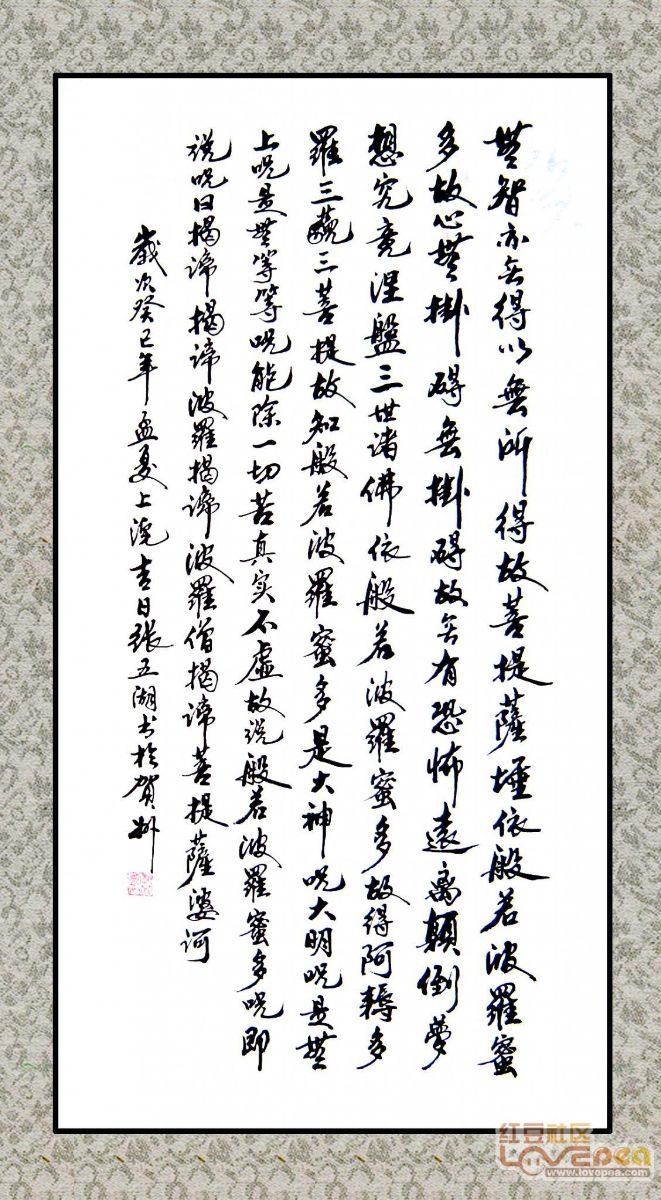 無智亦无得以無所得故菩提薩埵依般若波羅蜜
多故心無掛碍無掛碍故无有恐怖遠离顛倒夢
想究竟涅盤三世诸佛依般若波羅蜜多故得阿耨多
羅三藐三菩提故知般若波羅蜜多是大神呪大明呪是無
上呪是無等等呪能除一切苦真实不虛故说般若波羅蜜多呪即
说呪曰揭谛揭谛波羅揭谛波羅僧揭谛菩提薩婆诃
歲次癸巳年孟夏上浣吉日张五湖书於贺州
红豆社区
LOVEPEA
www.lovepea.com